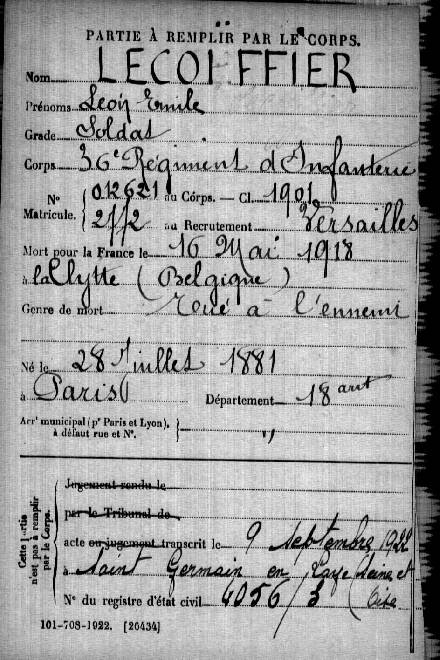 PARTIE À REMPLIR PAR LE CORPS.
Nom LECOIFFIER
Prénoms Léon Emile
Grade Soldat
Corps 36e Régiment d'Infanterie
N° Matricule. { 012621 au Corps. — Cl. 1901
2172 au Recrutement Versailles
Mort pour la France le 16 Mai 1918
à la Clytte (Belgique)
Genre de mort Tué à l'ennemi
Né le 28 Juillet 1881
à Paris Département 18 arrt
Arrt municipal (pr Paris et Lyon),
à défaut rue et N°.
Cette partie n'est pas à remplir par le Corps.
Jugement rendu le
par le Tribunal de
acte ou jugement transcrit le 9 Septembre 1922
à Saint Germain en Laye (Seine et Oise
N° du registre d'état civil 4056/3
101-708-1922. [26434]